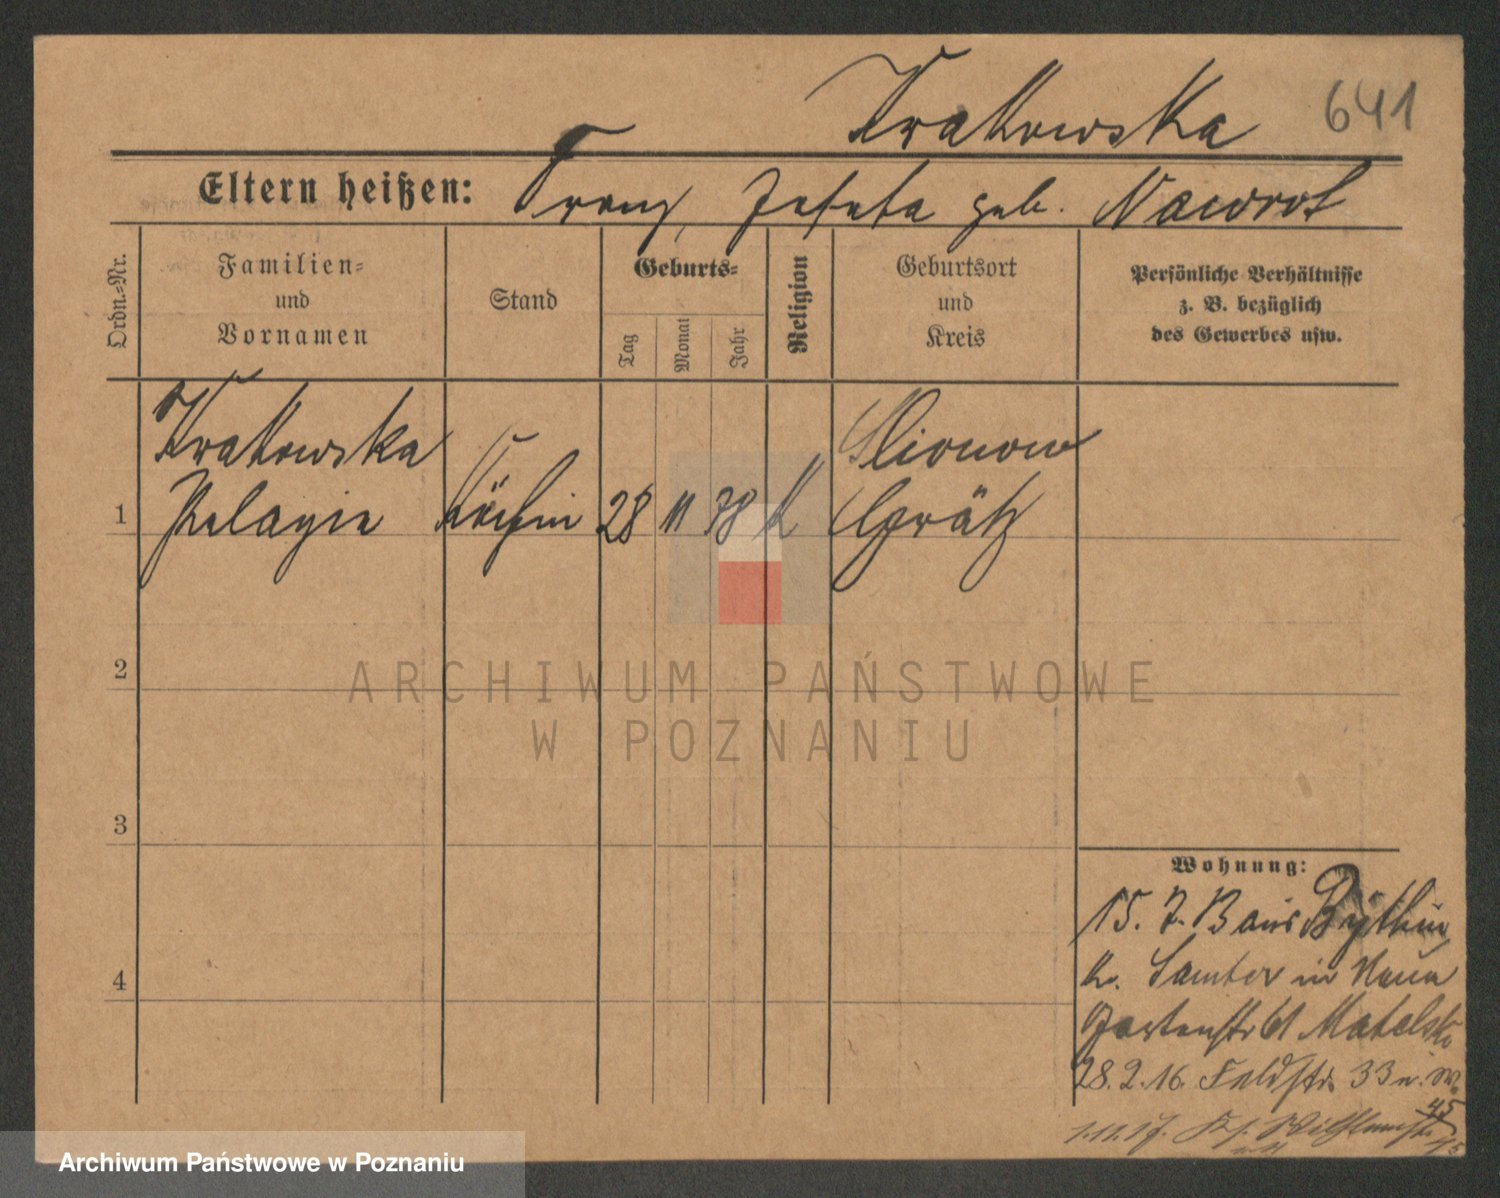 Krakowska 641
Eltern heißen: Franz, Josefa geb. Nawrot
Ordn.-Nr.
Familien-
und
Vornamen
Stand
Geburts-
Tag
Monat
Jahr
Religion
Geburtsort
und
Kreis
Persönliche Verhältnisse
z. B. bezüglich
des Gewerbes usw.
Krakowska
1 Pelagie Köchin 28 11 78 k Grätz
2
3
4
Wohnung:
15. 7. 13 aus Bythin
Kr. Samter in Neue
Gartenstr 61
28.2.16. Feldstr. 33
1.11.17.
ARCHIWUM PAŃSTWOWE
W POZNANIU
Archiwum Państwowe w Poznaniu